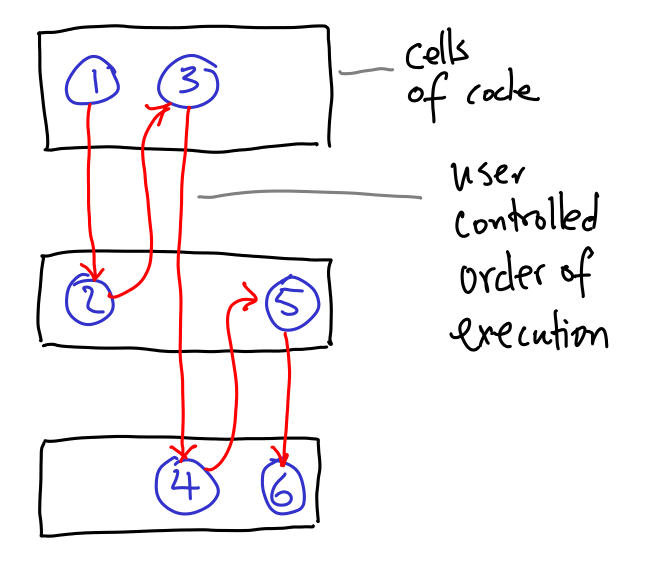 1 3
cells
of code
user
controlled
order of
execution
2 5
4 6